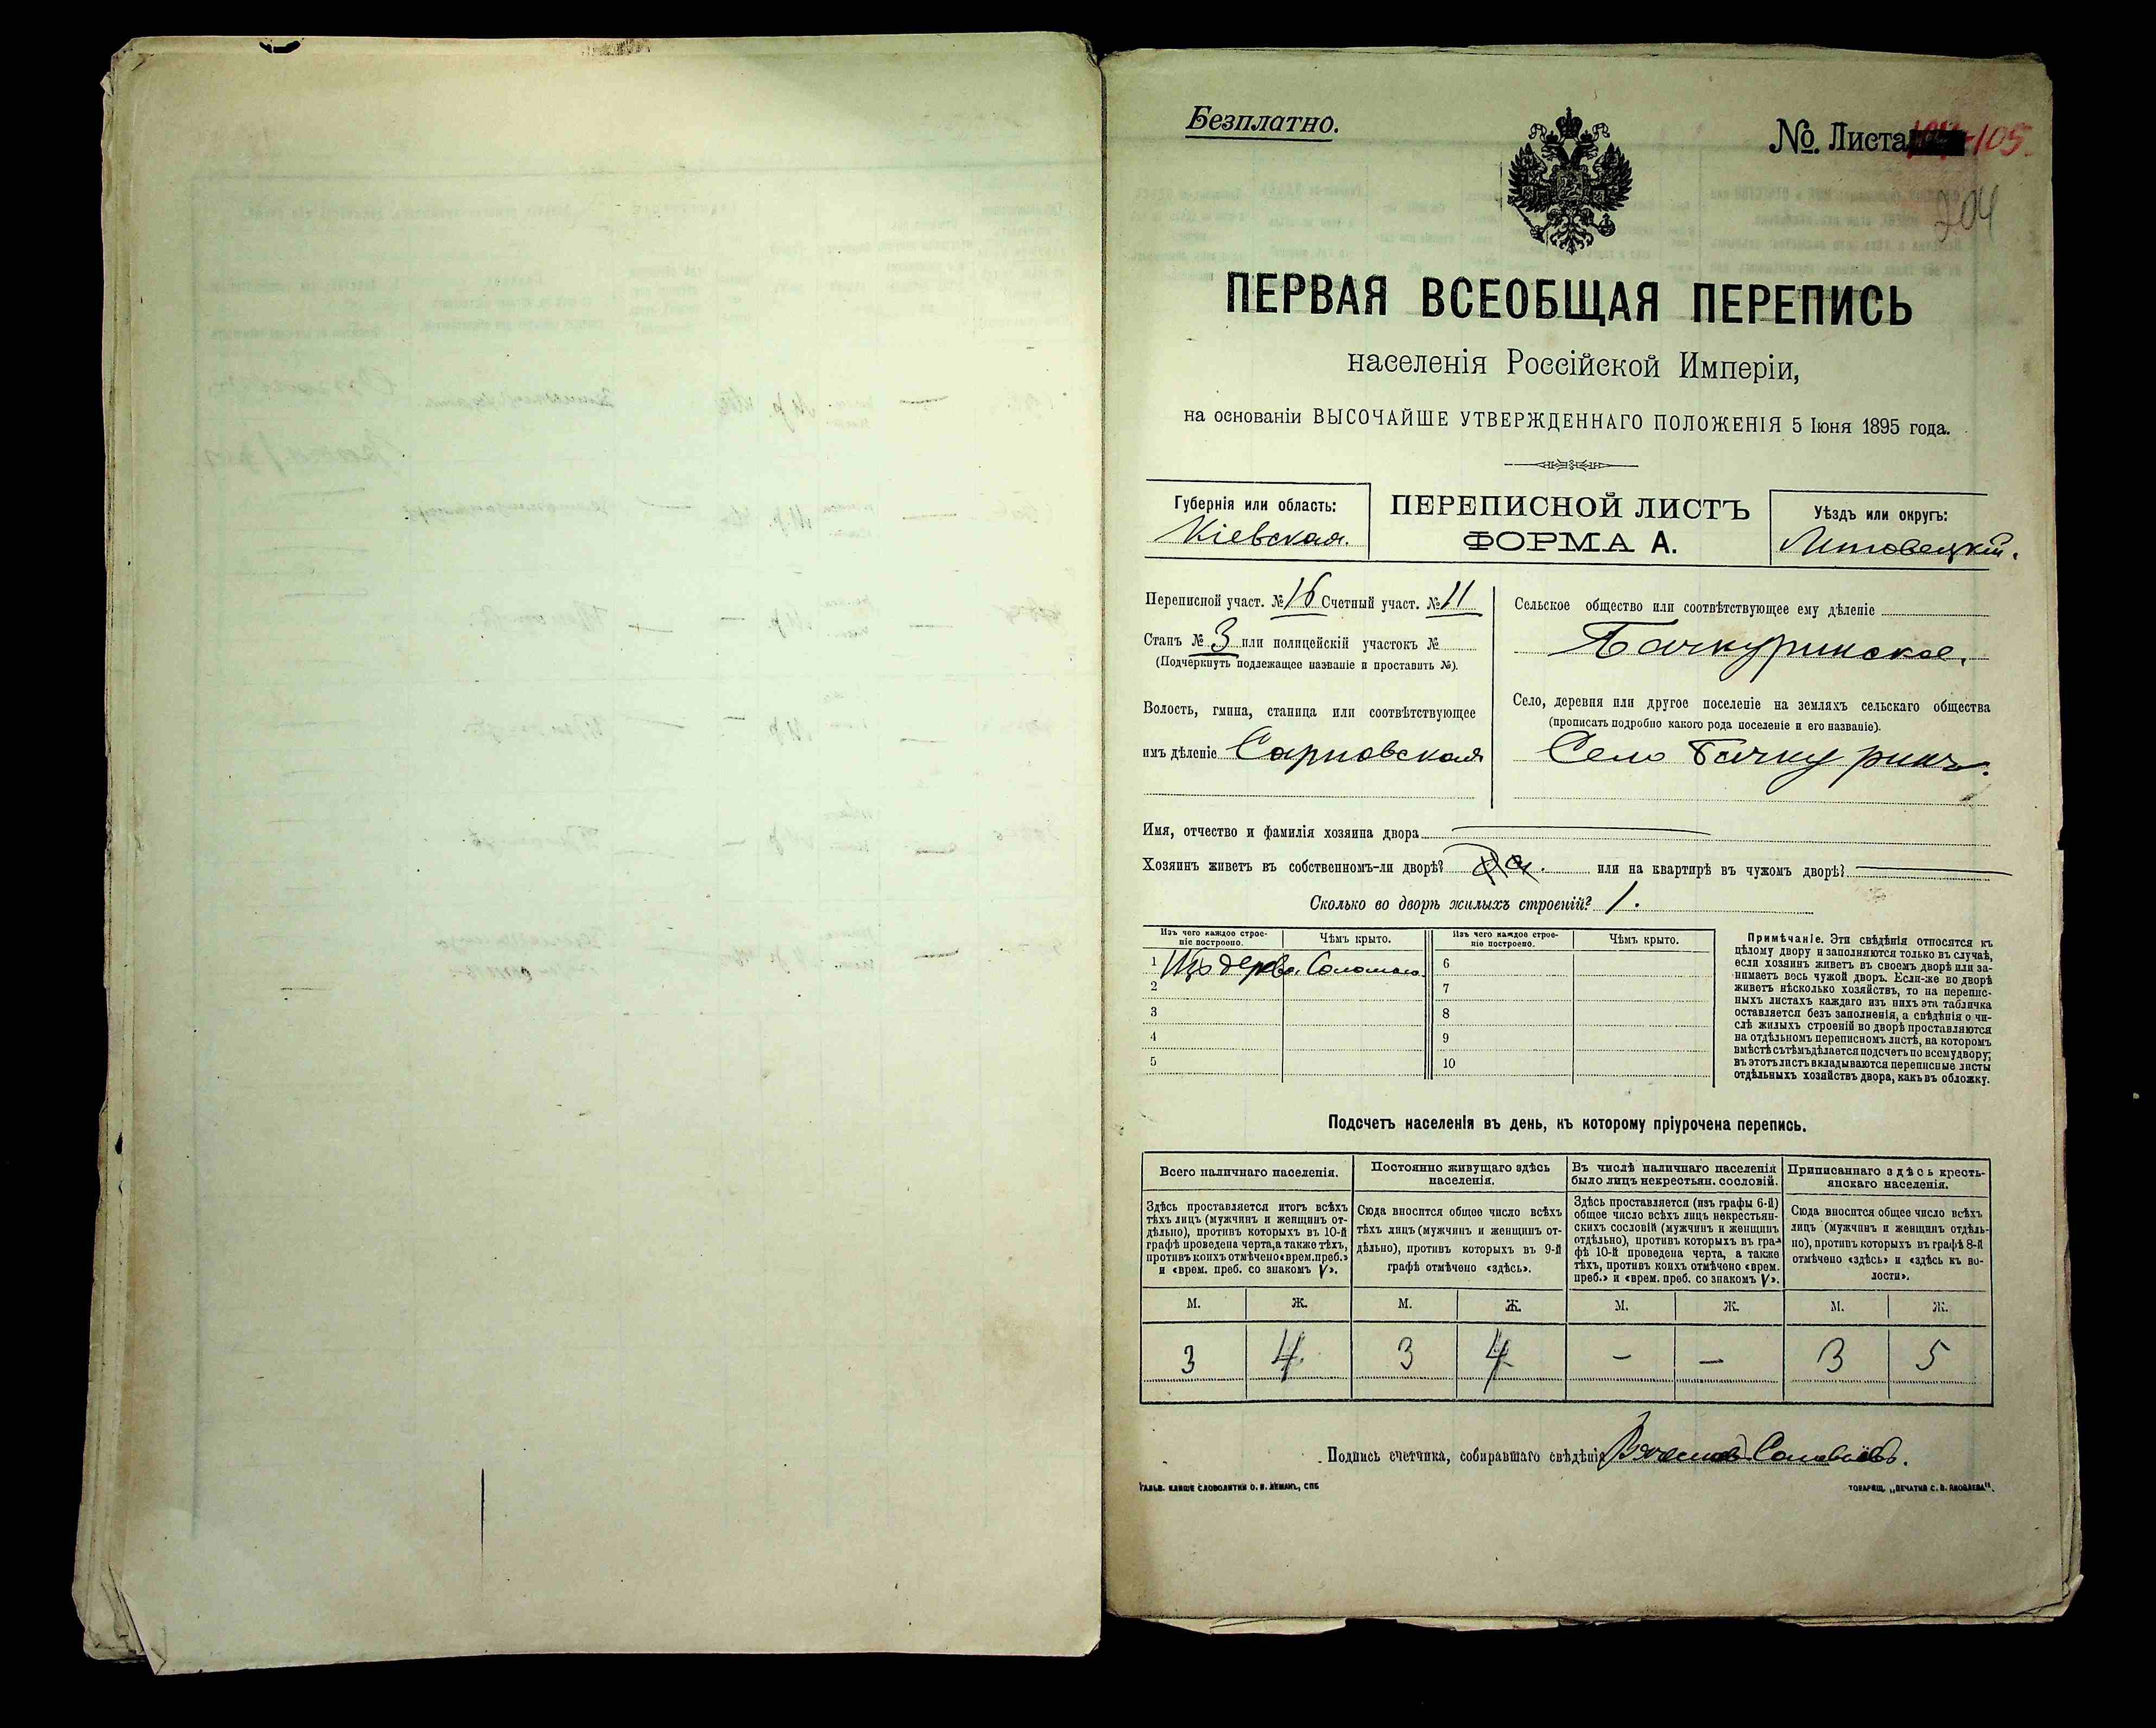 Безплатно.
№. Листа 105.
204
ПЕРВАЯ ВСЕОБЩАЯ ПЕРЕПИСЬ
населенія Россійской Имперіи,
на основаніи ВЫСОЧАЙШЕ УТВЕРЖДЕННАГО ПОЛОЖЕНІЯ 5 Іюня 1895 года.
Губернія или область:
Кіевская.
ПЕРЕПИСНОЙ ЛИСТЪ
ФОРМА А.
Уѣздъ или округъ:
Липовецкій.
Переписной участ. № 16 Счетный участ. № 11
Станъ № 3 или полицейскій участокъ №
(Подчеркнуть подлежащее названіе и проставить №).
Волость, гмина, станица или соотвѣтствующее
имъ дѣленіе Сарновская
Сельское общество или соотвѣтствующее ему дѣленіе
Бачкуринское.
Село, деревня или другое поселеніе на земляхъ сельскаго общества
(прописать подробно какого рода поселеніе и его названіе).
Село Бачкуринъ.
Имя, отчество и фамилія хозяина двора
Хозяинъ живетъ въ собственномъ-ли дворѣ? Да. или на квартирѣ въ чужомъ дворѣ?
Сколько во дворѣ жилыхъ строеній? 1.
Изъ чего каждое строе-
ніе построено.
Чѣмъ крыто.
Изъ чего каждое строе-
ніе построено.
Чѣмъ крыто.
1 Изъ дерева. Соломою 6
2 7
3 8
4 9
5 10
Примѣчаніе. Эти свѣдѣнія относятся къ
цѣлому двору и заполняются только въ случаѣ,
если хозяинъ живетъ въ своемъ дворѣ или за-
нимаетъ весь чужой дворъ. Если-же во дворѣ
живетъ нѣсколько хозяйствъ, то на перепис-
ныхъ листахъ каждаго изъ нихъ эта табличка
оставляется безъ заполненія, а свѣдѣнія о чи-
слѣ жилыхъ строеній во дворѣ проставляются
на отдѣльномъ переписномъ листѣ, на которомъ
вмѣстѣ съ тѣмъ дѣлается подсчетъ по всему двору;
въ этотъ листъ вкладываются переписные листы
отдѣльныхъ хозяйствъ двора, какъ въ обложку.
Подсчетъ населенія въ день, къ которому пріурочена перепись.
Всего наличнаго населенія.
Здѣсь проставляется итогъ всѣхъ
тѣхъ лицъ (мужчинъ и женщинъ от-
дѣльно), противъ которыхъ въ 10-й
графѣ проведена черта, а также тѣхъ,
противъ коихъ отмѣчено «врем. преб.»
и «врем. преб. со знакомъ V».
Постоянно живущаго здѣсь
населенія.
Сюда вносится общее число всѣхъ
тѣхъ лицъ (мужчинъ и женщинъ от-
дѣльно), противъ которыхъ въ 9-й
графѣ отмѣчено «здѣсь».
Въ числѣ наличнаго населенія
было лицъ некрестьян. сословій.
Здѣсь проставляется (изъ графы 6-й)
общее число всѣхъ лицъ некрестьян-
скихъ сословій (мужчинъ и женщинъ
отдѣльно), противъ которыхъ въ гра-
фѣ 10-й проведена черта, а также
тѣхъ, противъ коихъ отмѣчено «врем.
преб.» и «врем. преб. со знакомъ V».
Приписаннаго здѣсь кресть-
янскаго населенія.
Сюда вносится общее число всѣхъ
лицъ (мужчинъ и женщинъ отдѣль-
но), противъ которыхъ въ графѣ 8-й
отмѣчено «здѣсь» и «здѣсь къ во-
лости».
М. Ж. М. Ж. М. Ж. М. Ж.
3 4 3 4 – – 3 5
Подпись счетчика, собиравшаго свѣдѣнія Соловьевъ.
ГАЛЬВ. КЛИШЕ СЛОВОЛИТНИ О. И. ЛЕМАНЪ, СПБ
ТОВАРИЩ. „ПЕЧАТНЯ С. П. ЯКОВЛЕВА".